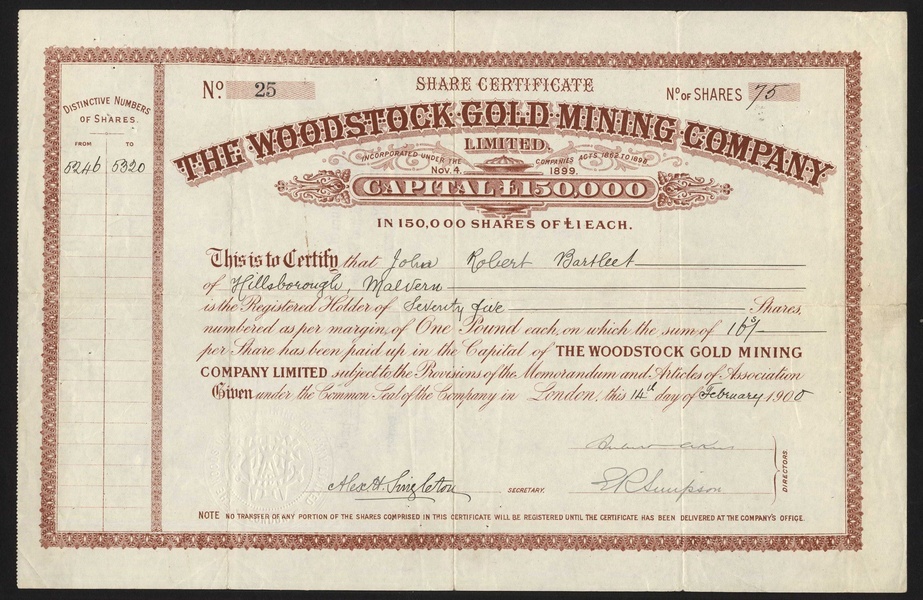 DISTINCTIVE NUMBERS
OF SHARES.
FROM TO
5246 5320
No. 25
SHARE CERTIFICATE
No. OF SHARES 75
THE WOODSTOCK·GOLD·MINING·COMPANY
LIMITED.
INCORPORATED UNDER THE COMPANIES ACTS 1862 TO 1898
Nov. 4. 1899.
CAPITAL £150,000
IN 150,000 SHARES OF £1 EACH.
This is to Certify that John Robert Bartleet
of Hillsborough, Malvern
is the Registered Holder of Seventy five Shares,
numbered as per margin, of One Pound each, on which the sum of 16/
per Share has been paid up in the Capital of THE WOODSTOCK GOLD MINING
COMPANY LIMITED subject to the Provisions of the Memorandum and Articles of Association
Given under the Common Seal of the Company in London, this 14th day of February 1900
Alex H. Singleton SECRETARY.
E R Simpson
DIRECTORS.
NOTE NO TRANSFER OF ANY PORTION OF THE SHARES COMPRISED IN THIS CERTIFICATE WILL BE REGISTERED UNTIL THE CERTIFICATE HAS BEEN DELIVERED AT THE COMPANY'S OFFICE.